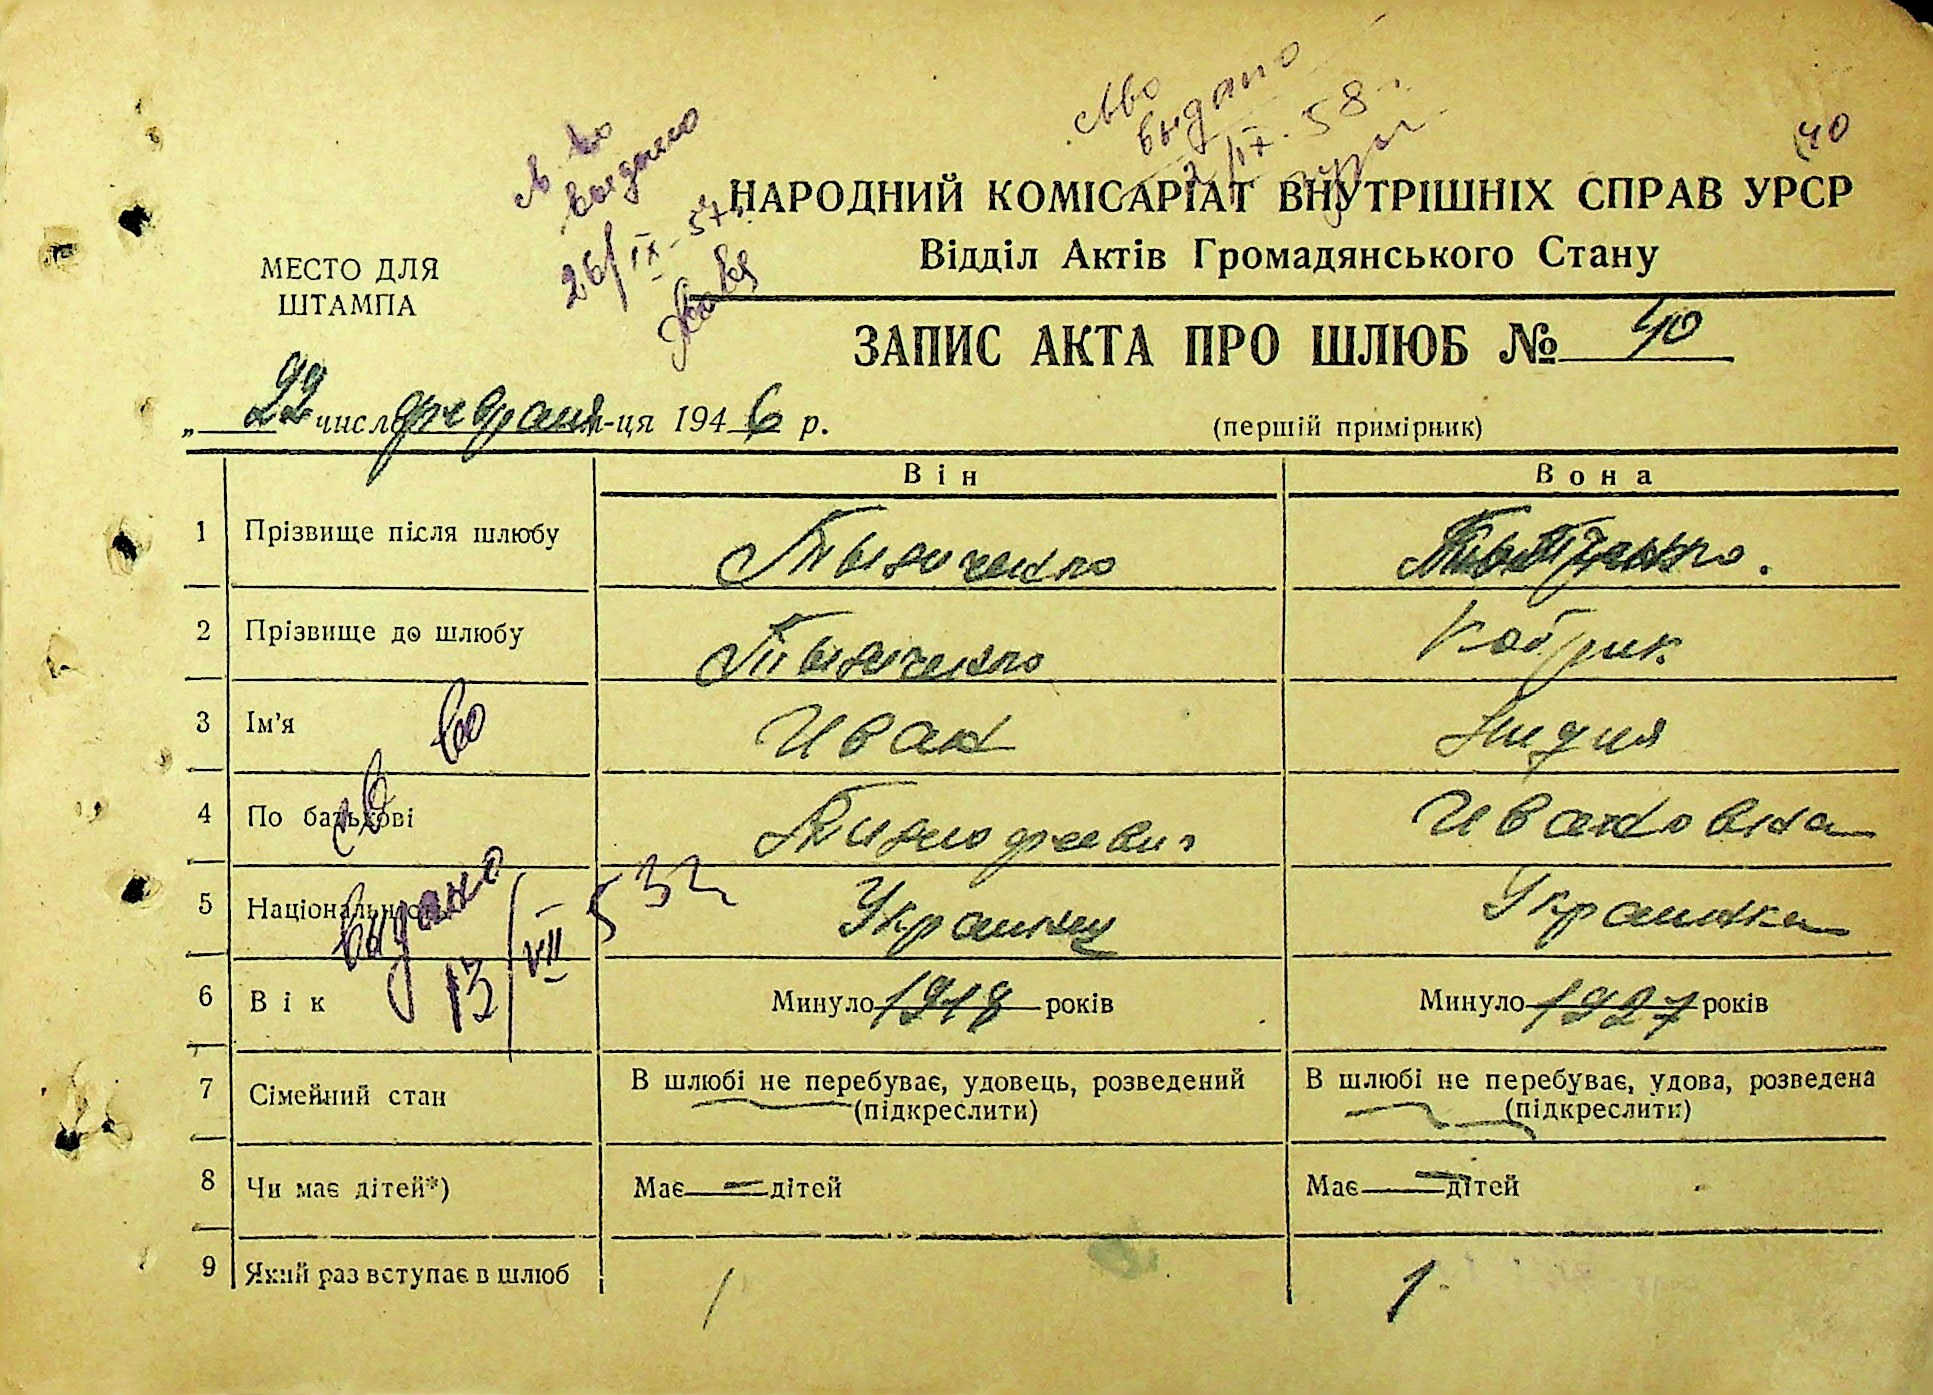 40
выдано
26/IX-57г.
выдано
2/IX-58г.
НАРОДНИЙ КОМІСАРІАТ ВНУТРІШНІХ СПРАВ УРСР
Відділ Актів Громадянського Стану
МЕСТО ДЛЯ
ШТАМПА
ЗАПИС АКТА ПРО ШЛЮБ № 40
„22 число февраля м-ця 1946 р.
(першій примірник)
Він Вона
1 Прізвище після шлюбу
2 Прізвище до шлюбу Кобрик
3 Ім'я Иван Лидия
4 По батькові Тимофеевич Ивановна
5 Національність Украинец Украинка
св во
выдано
13/VII 53г
6 Вік Минуло 1918 років Минуло 1927 років
7 Сімейний стан В шлюбі не перебуває, удовець, розведений В шлюбі не перебуває, удова, розведена
(підкреслити) (підкреслити)
8 Чи має дітей*) Має — дітей Має — дітей
9 Який раз вступає в шлюб 1 1.